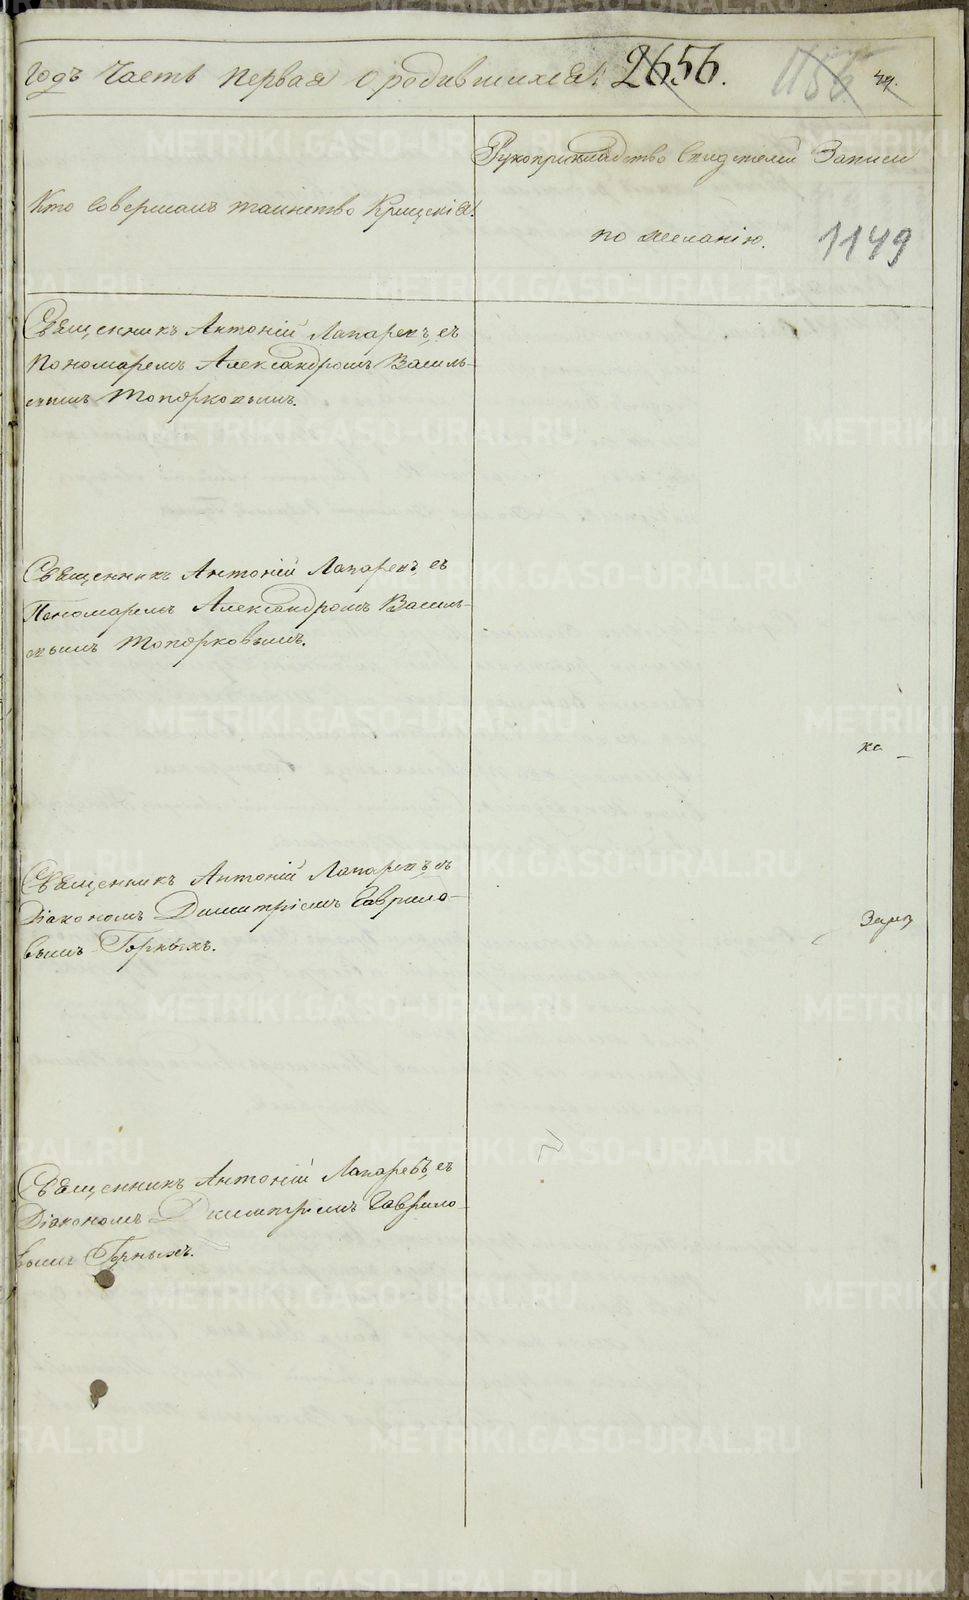 Годъ Часть Первая О родившихся. 2656. 1156 44.
Рукоприкладство Свидетелей Записи
Кто Совершалъ таинство Крещенія.
по желанію. 1149
Священникъ Антоній Лапаревъ, съ
Пономаремъ Александромъ Василь-
евымъ Топорковымъ.
Священникъ Антоній Лапаревъ, съ
Пономаремъ Александромъ Василь-
евымъ Топорковымъ.
Священникъ Антоній Лапаревъ, съ
Діакономъ Димитріемъ Гаврило-
вымъ Горныхъ.
Священникъ Антоній Лапаревъ, съ
Діакономъ Димитріемъ Гаврило-
вымъ Горныхъ.
METRIKI.GASO-URAL.RU